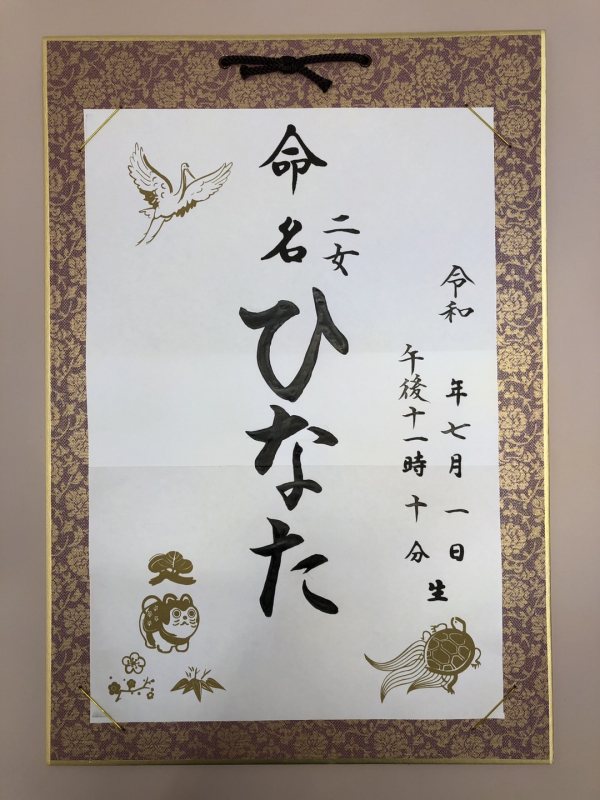 令和 年七月一日
午後十一時十分
生
二女
命名
ひなた